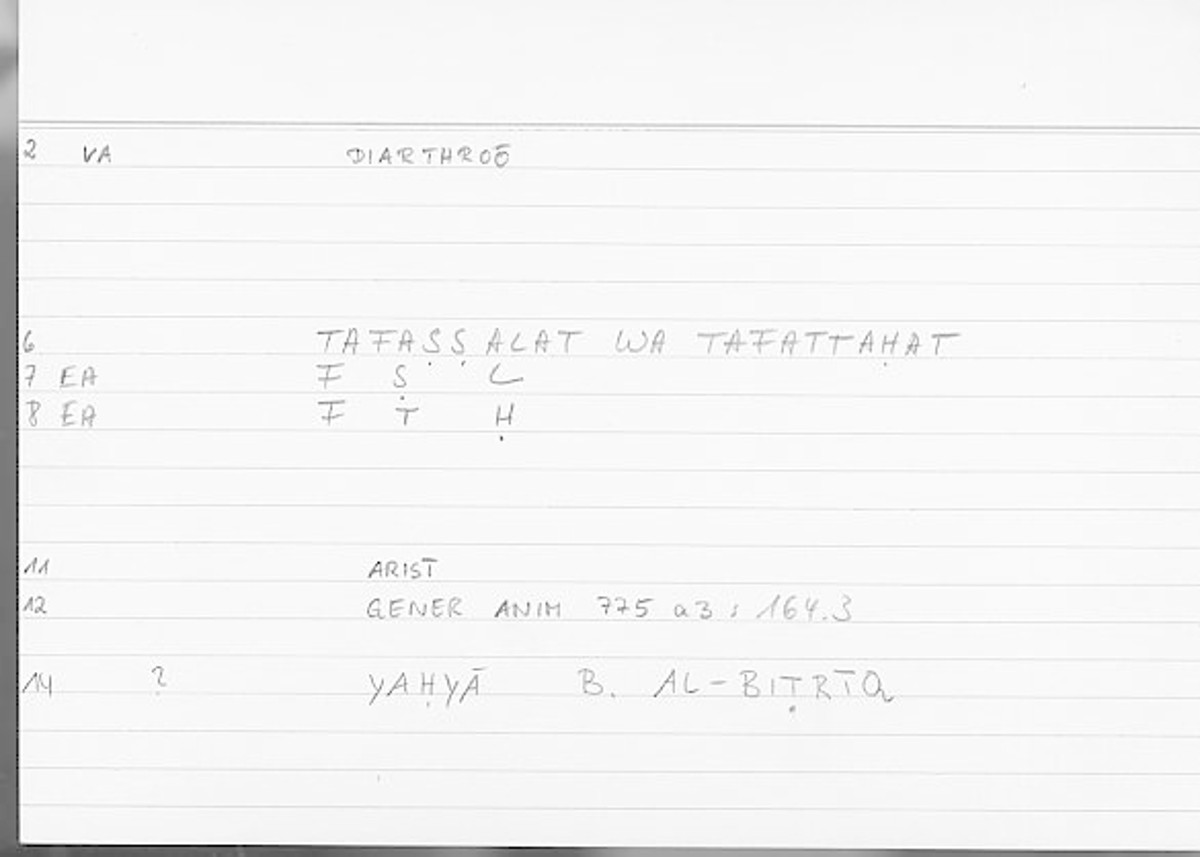 2 VA DIARTHROŌ
6 TAFAṢṢALAT WA TAFATTAḤAT
7 EA F Ṣ L
8 EA F T Ḥ
11 ARIST
12 GENER ANIM 775 a3 : 164.3
14 ? YAḤYĀ B. AL-BIṬRĪQ